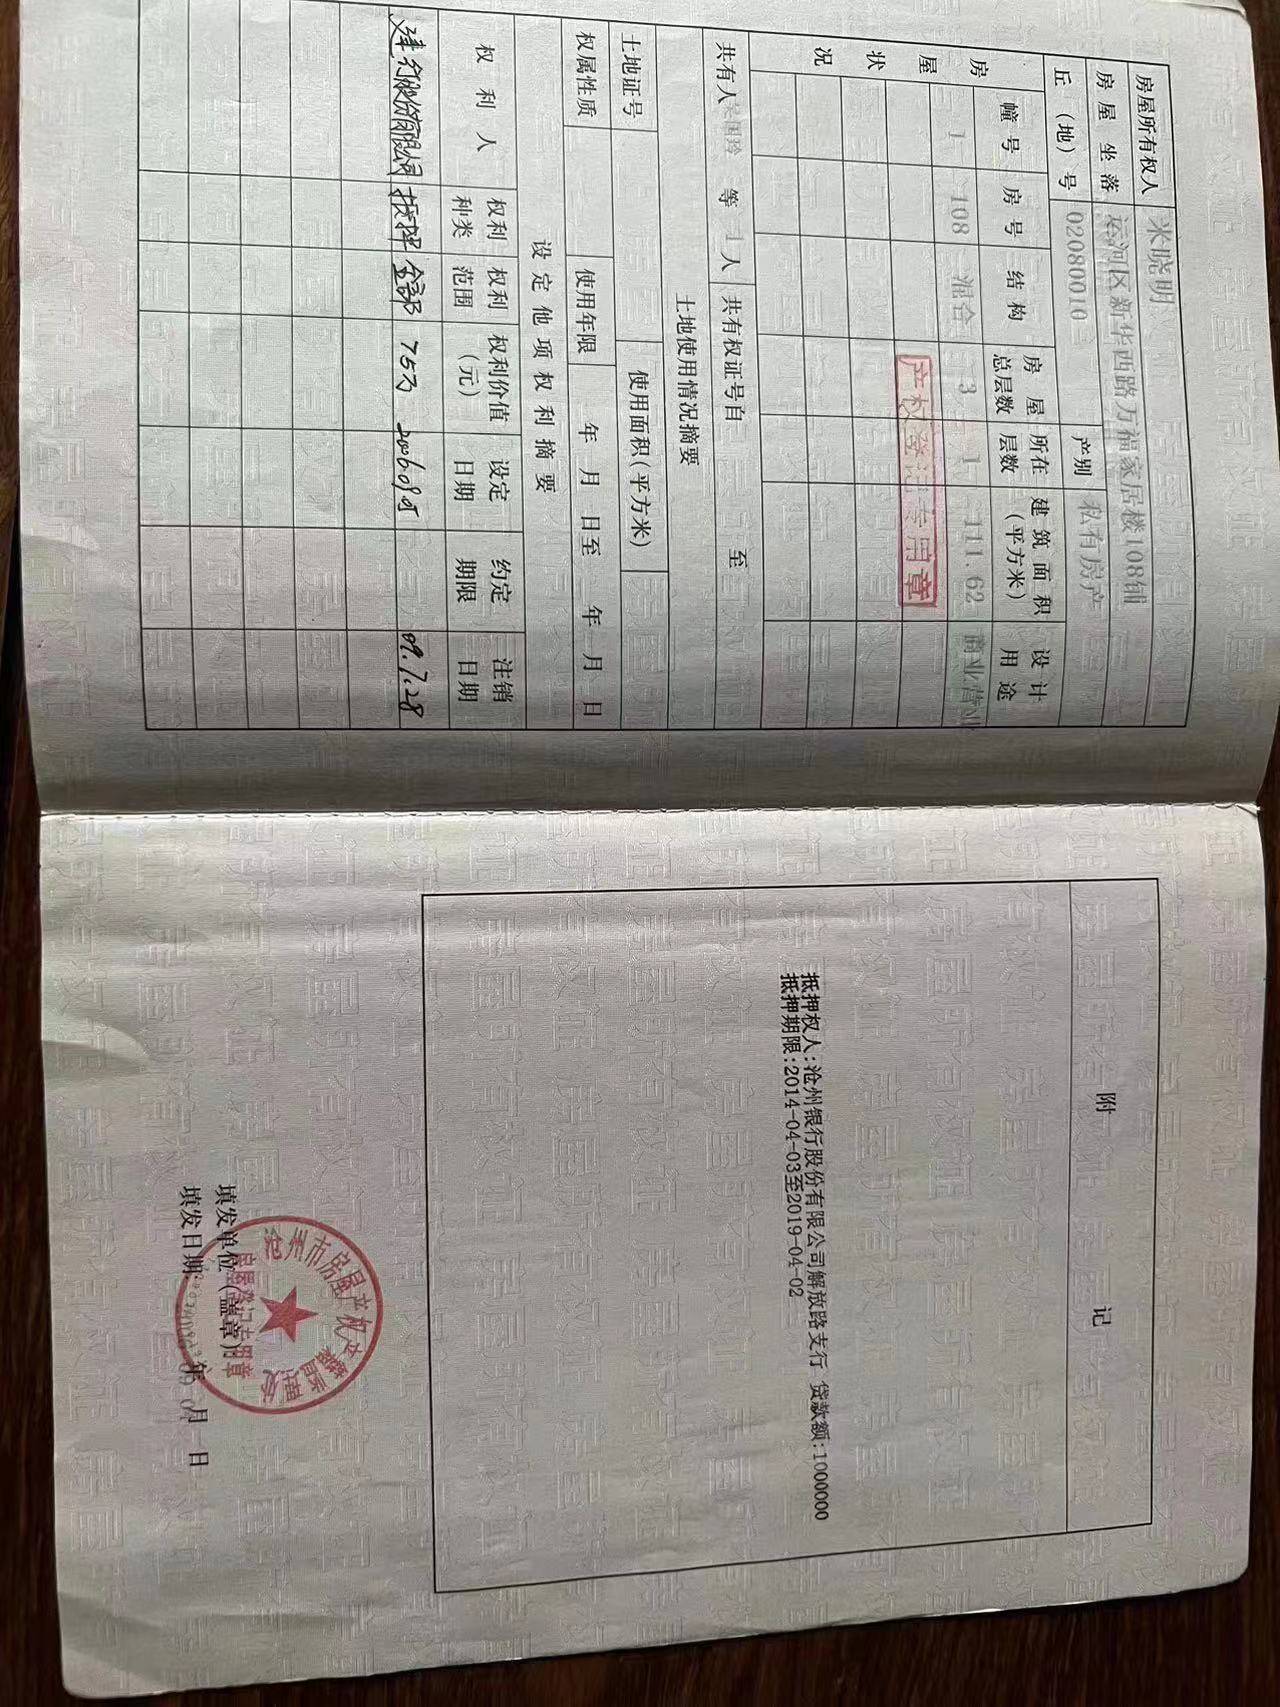 房屋所有权人 米晓明
房屋坐落 运河区新华西路万福家居楼108铺
丘（地）号 02080010 产别 私有房产
房屋状况
幢号 房号 结构 房屋总层数 所在层数 建筑面积（平方米） 设计用途
1 108 混合 3 1 111.62 商业营业
产权登记专用章
共有人 国玲 等 1 人 共有权证号自 至
土地使用情况摘要
土地证号 使用面积(平方米)
权属性质 使用年限 年 月 日至 年 月 日
设定他项权利摘要
权利人 权利种类 权利范围 权利价值（元） 设定日期 约定期限 注销日期
建行股份有限公司 抵押 全部 75万 2006.09.05 09.7.28
附 记
抵押权人:沧州银行股份有限公司解放路支行 贷款额:1000000
抵押期限:2014-04-03至2019-04-02
沧州市房屋产权
房屋登记专用章
填发单位（盖章）
填发日期: 年 月 日